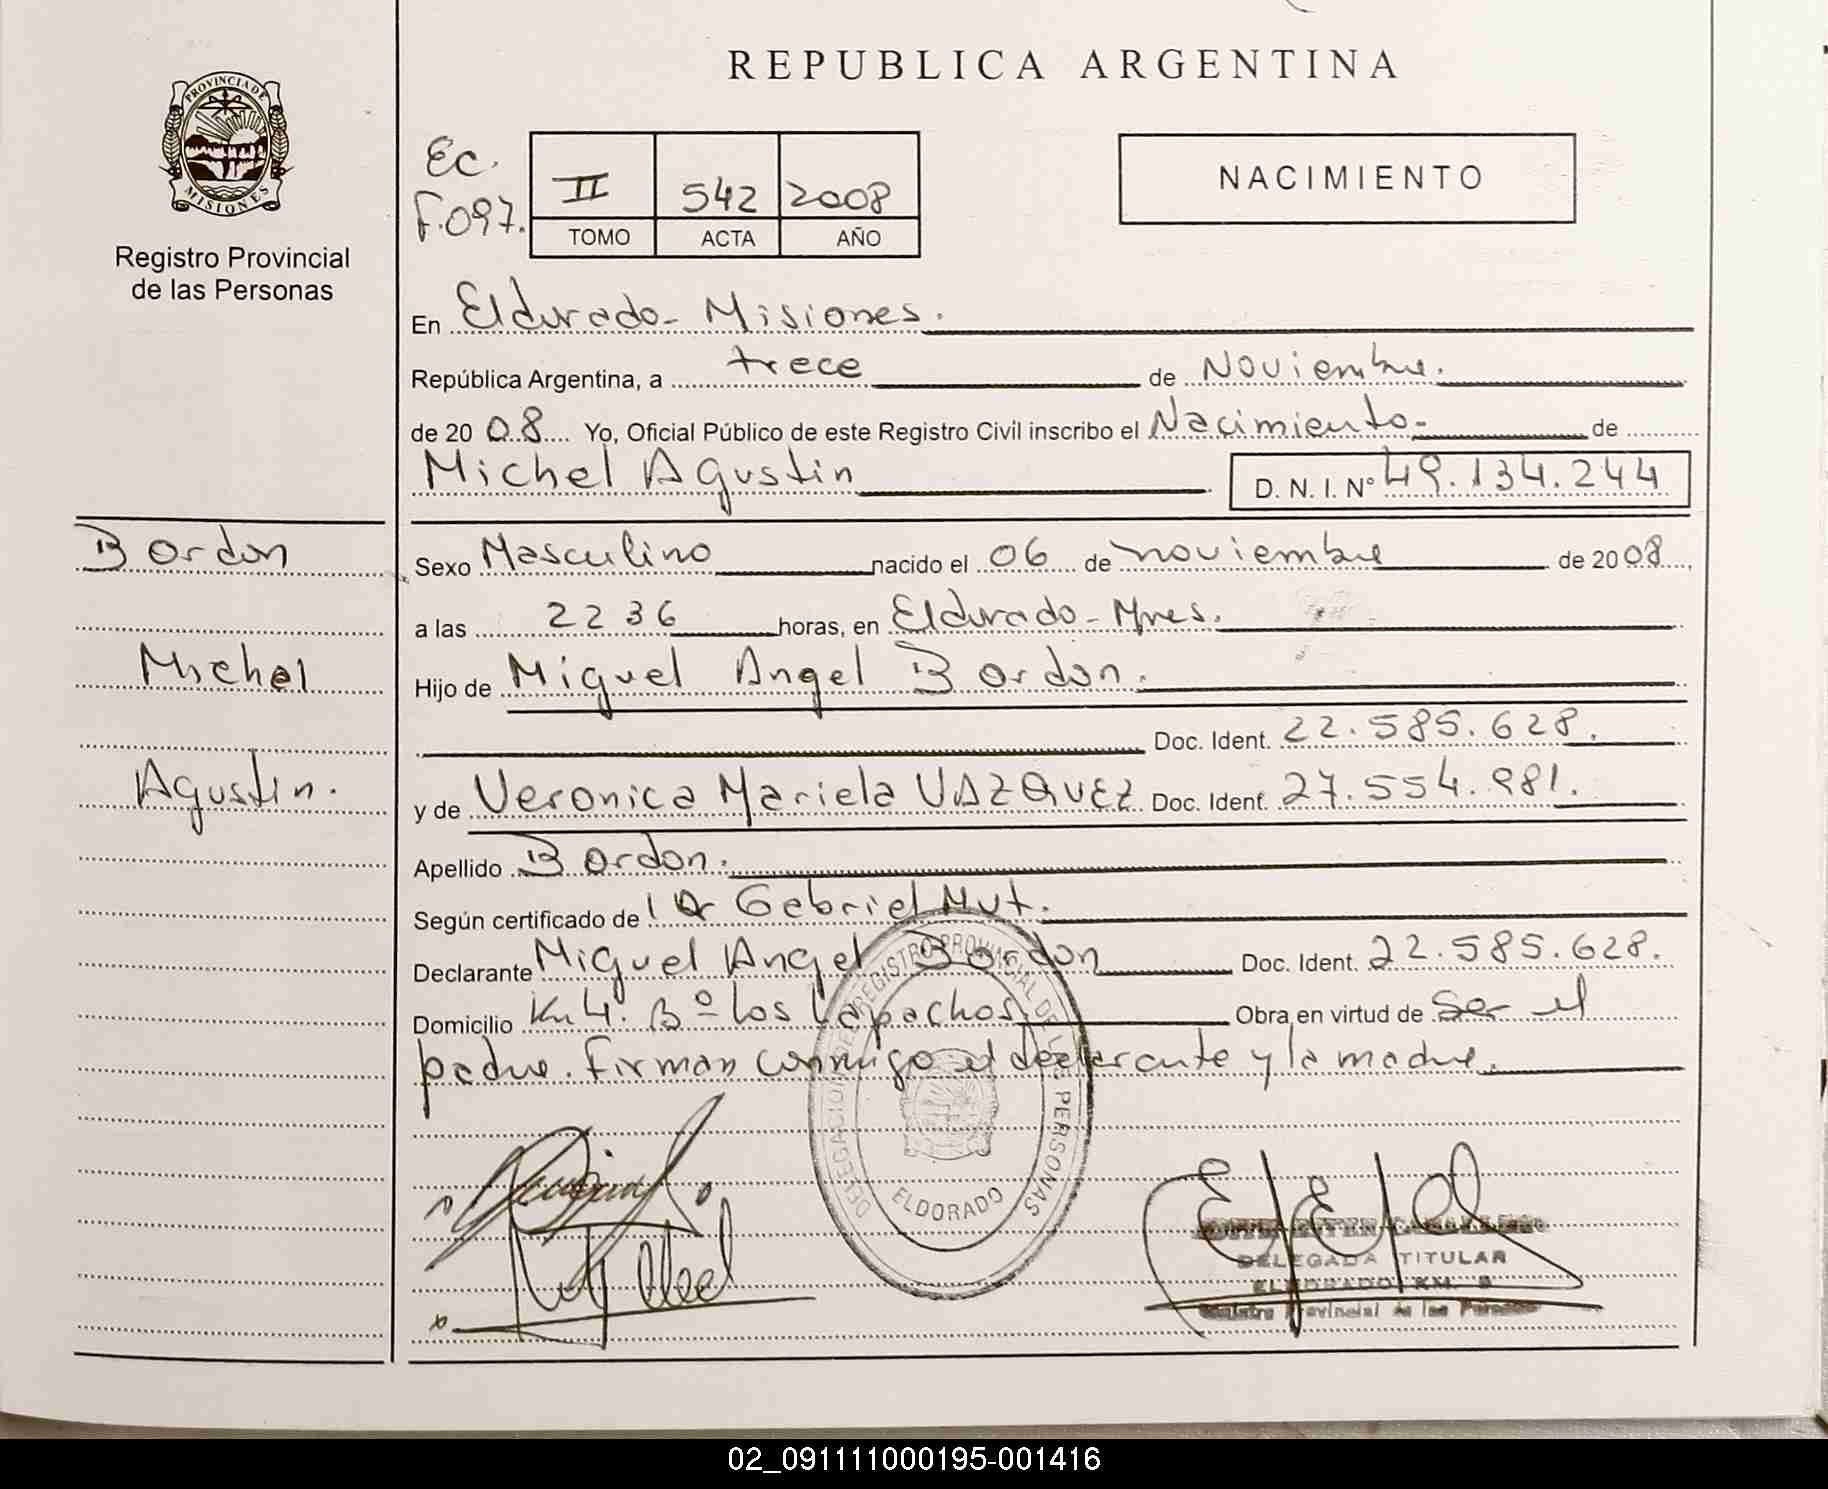 PROVINCIA DE
MISIONES
Registro Provincial
de las Personas
REPUBLICA ARGENTINA
Ec.
F.097.
II 542 2008
TOMO ACTA AÑO
NACIMIENTO
En Eldorado - Misiones.
República Argentina, a trece de Noviembre.
de 20 08 Yo, Oficial Público de este Registro Civil inscribo el Nacimiento - de
Michel Agustin D. N. I. Nº 49.134.244
Bordon
Michel
Agustin.
Sexo Masculino nacido el 06 de noviembre de 20 08,
a las 22 36 horas, en Eldorado - Mnes.
Hijo de Miguel Angel Bordon.
Doc. Ident. 22.585.628.
y de Veronica Mariela VAZQUEZ Doc. Ident. 27.554.981.
Apellido Bordon.
Según certificado de Gabriel Mut.
Declarante Miguel Angel Bordon Doc. Ident. 22.585.628.
Domicilio Km 4. Bº los Lapachos Obra en virtud de Ser el
padre. Firman conmigo el declarante y la madre.
DELEGACION DEL REGISTRO PROVINCIAL DE LAS PERSONAS
ELDORADO
DELEGADA TITULAR
ELDORADO KM.
Registro Provincial de las Personas
02_091111000195-001416